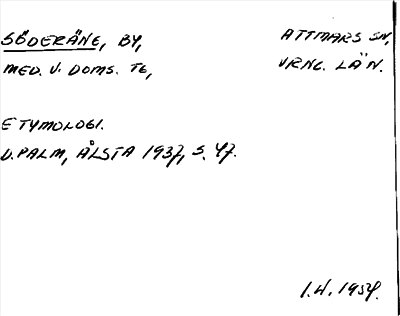 SÖDERÄNG, BY, ATTMARS SN,
MED. V. DOMS. TG, VRNL. LÄN.
ETYMOLOGI.
D. PALM, ÅLSTA 1937, S. 47.
1.4.1954.